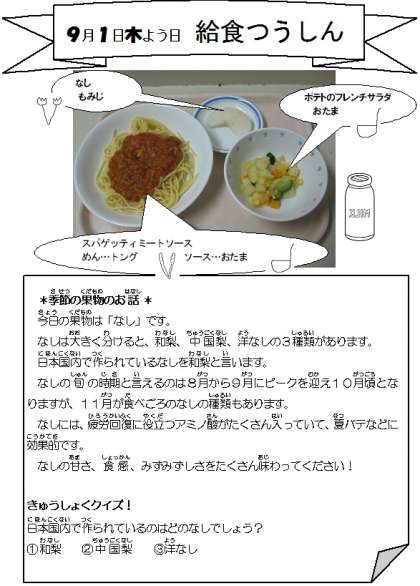 9月1日木よう日 給食つうしん
なし
もみじ
ポテトのフレンチサラダ
おたま
スパゲッティミートソース
めん…トング ソース…おたま
*季節の果物のお話*
今日の果物は「なし」です。
なしは大きく分けると、和梨、中国梨、洋なしの3種類があります。
日本国内で作られているなしを和梨と言います。
なしの旬の時期と言えるのは8月から9月にピークを迎え10月頃とな
りますが、11月が食べごろのなしの種類もあります。
なしには、疲労回復に役立つアミノ酸がたくさん入っていて、夏バテなどに
効果的です。
なしの甘さ、食感、みずみずしさをたくさん味わってください!
きゅうしょくクイズ!
日本国内で作られているのはどのなしでしょう?
①和梨 ②中国梨 ③洋なし